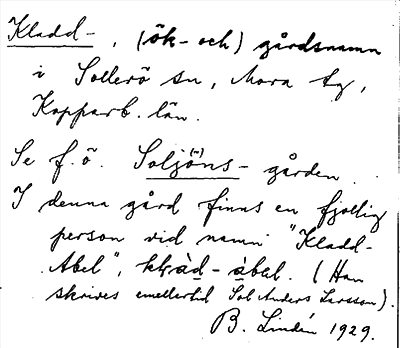 Kladd-, (ök- och) gårdsnamn
i Sollerö sn, Mora tg,
Kopparb. län.
Se f.ö. Soljö(n)s-gården.
I denna gård finns en fjollig
person vid namn "Kladd-
Abel", kḷàd-àbəl. (Han
skrives emellertid Sol Anders Larsson).
B. Lindén 1929.